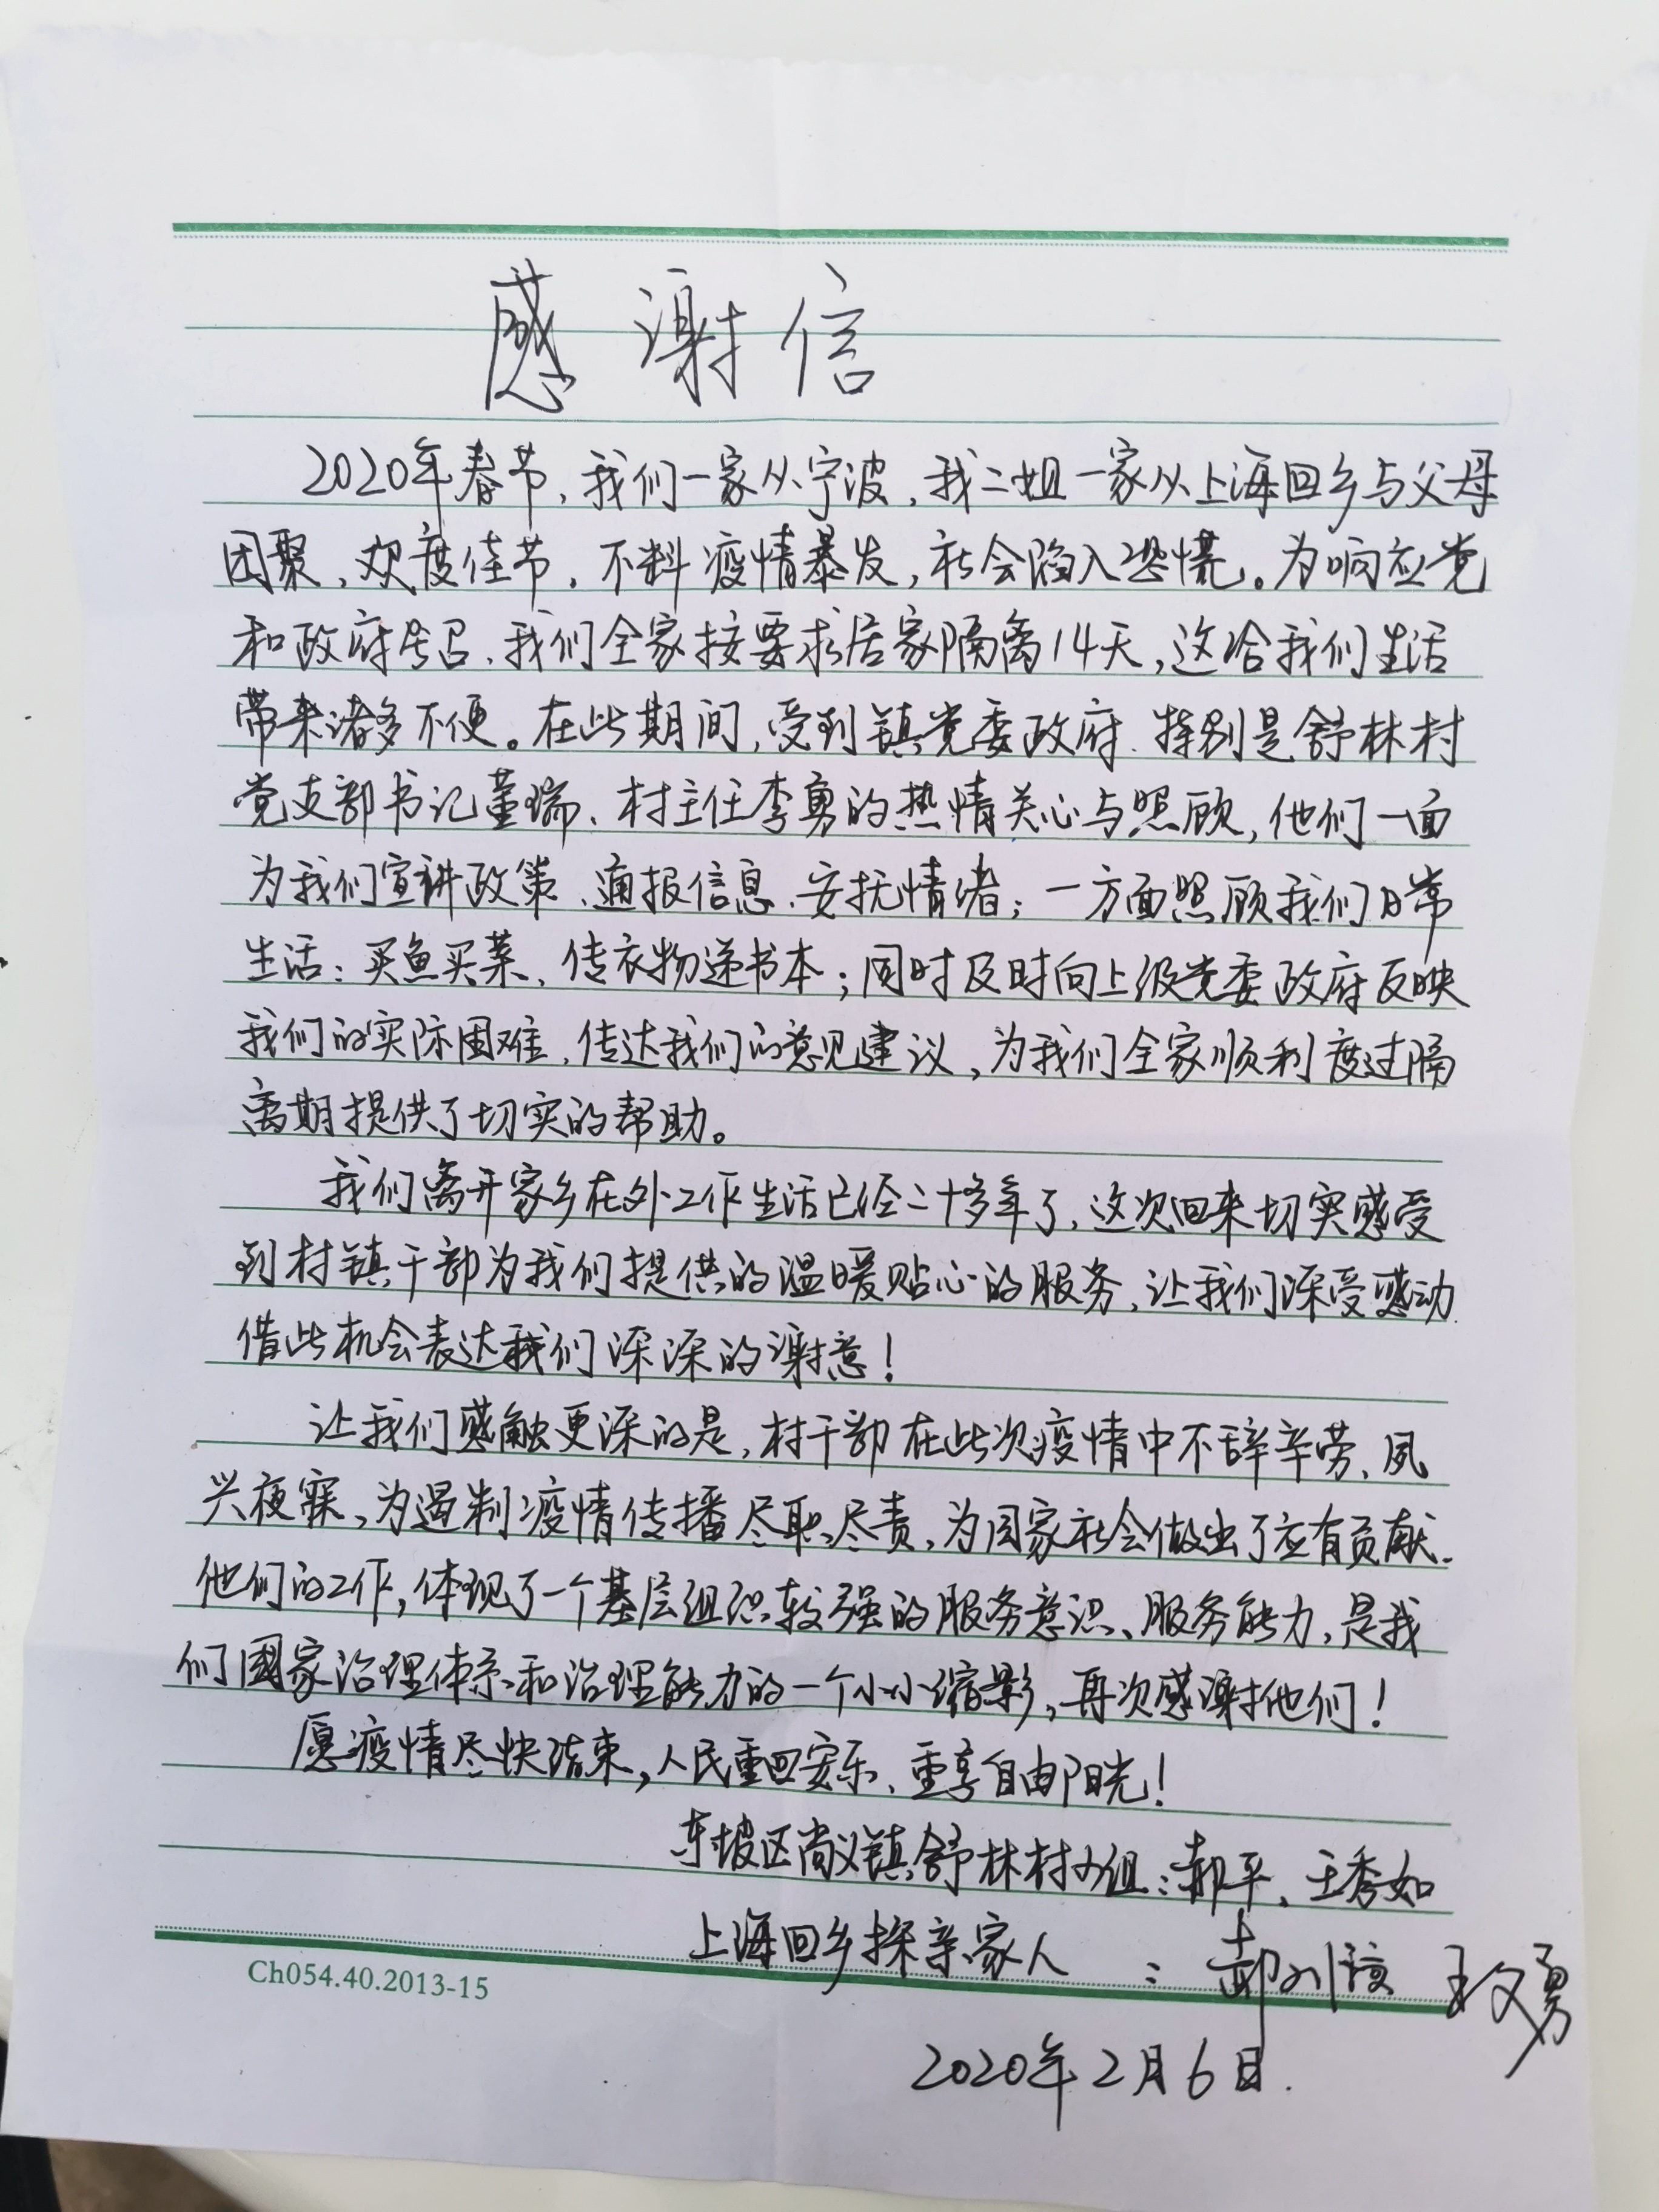 感谢信
2020年春节,我们一家从宁波,我二姐一家从上海回乡与父母
团聚、欢度佳节,不料疫情暴发,社会陷入恐慌。为响应党
和政府号召,我们全家按要求居家隔离14天,这给我们生活
带来诸多不便。在此期间,受到镇党委政府、特别是舒林村
党支部书记董瑞、村主任李勇的热情关心与照顾,他们一面
为我们宣讲政策、通报信息、安抚情绪;一方面照顾我们日常
生活:买鱼买菜、传衣物递书本;同时及时向上级党委政府反映
我们的实际困难,传达我们的意见建议,为我们全家顺利度过隔
离期提供了切实的帮助。
我们离开家乡在外工作生活已经二十多年了,这次回来切实感受
到村镇干部为我们提供的温暖贴心的服务,让我们深受感动.
借此机会表达我们深深的谢意!
让我们感触更深的是,村干部在此次疫情中不辞辛劳、夙
兴夜寐,为遏制疫情传播尽职尽责,为国家社会做出了应有贡献.
他们的工作,体现了一个基层组织较强的服务意识、服务能力,是我
们国家治理体系和治理能力的一个小小缩影,再次感谢他们!
愿疫情尽快结束,人民重回安乐、重享自由阳光!
东坡区尚义镇舒林村组:郝平、王秀如
上海回乡探亲家人:郝川 王文勇
Ch054.40.2013-15
2020年2月6日.